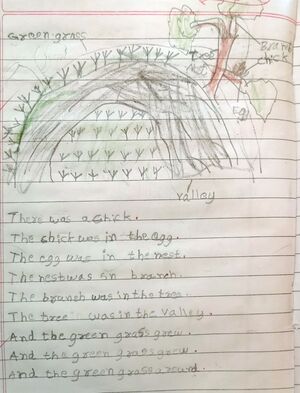 Green grass
tree
Branch
chick
Egg
valley
There was a chick.
The chick was in the egg.
The egg was in the nest.
The nest was in branch.
The branch was in the tree.
The tree was in the valley.
And the green grass grew.
And the green grass grew.
And the green grass around.